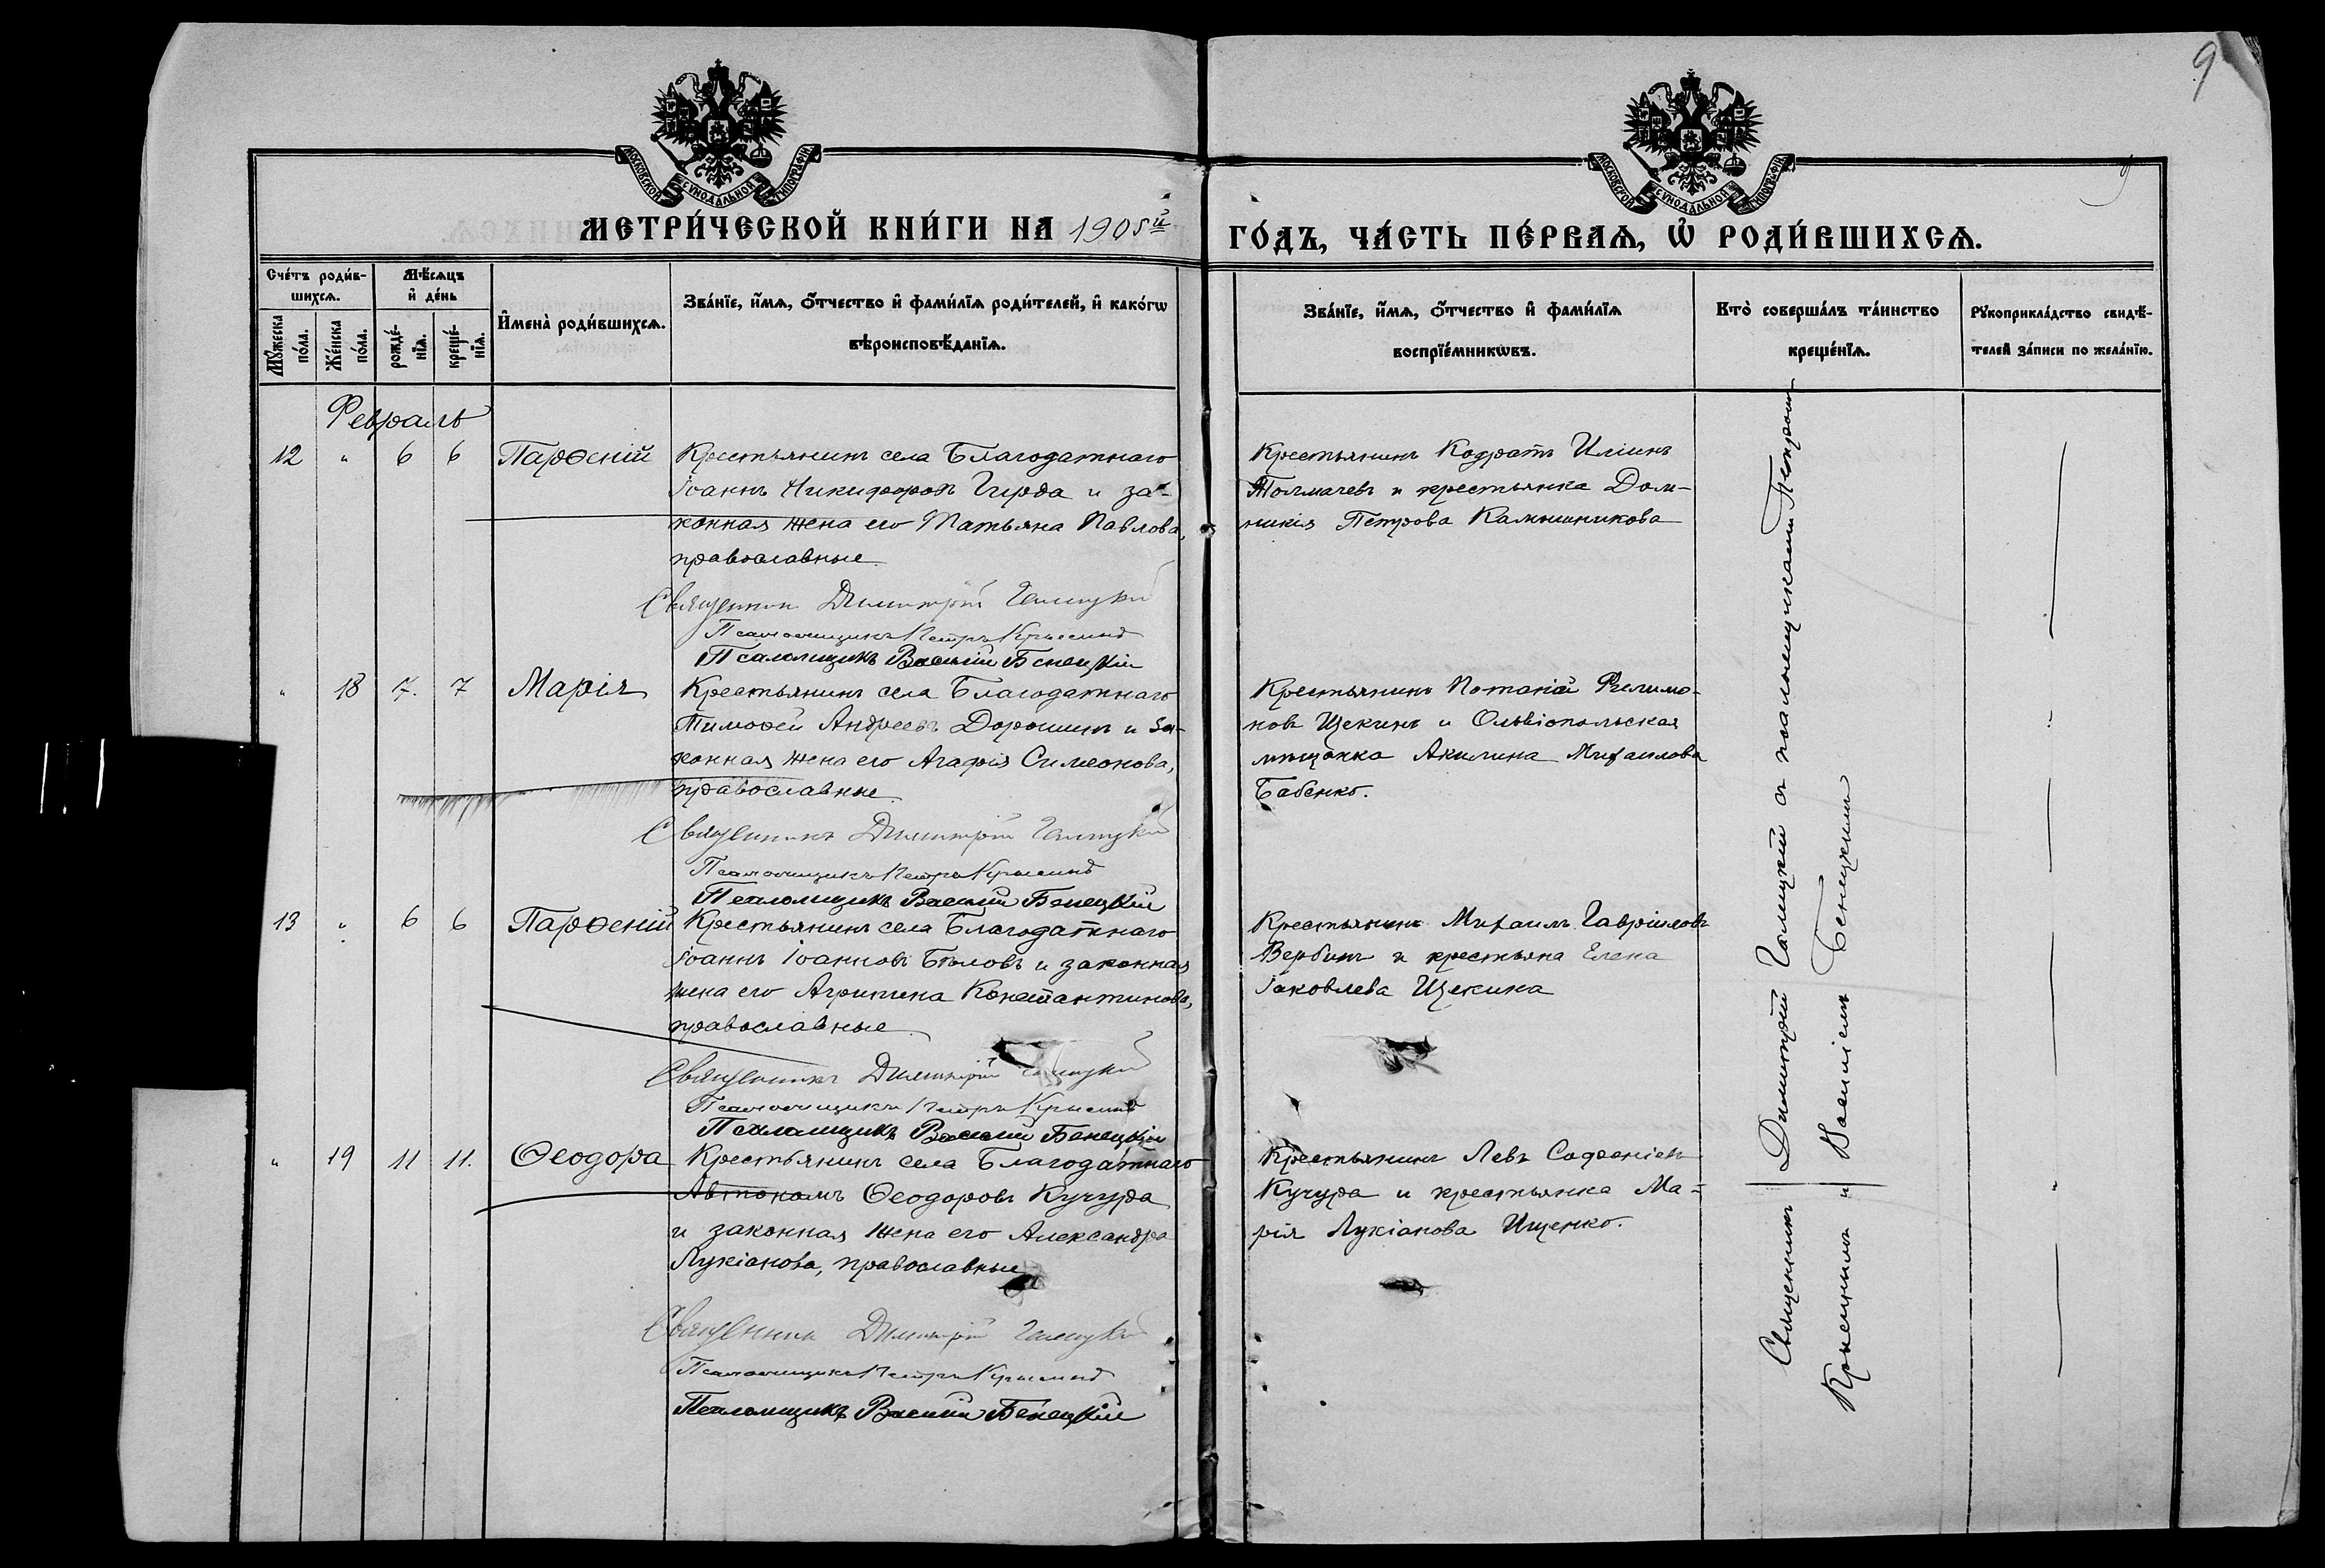 9
МОСКОВСКОЙ СѴНОДАЛЬНОЙ ТИПОГРАФІИ
МОСКОВСКОЙ СѴНОДАЛЬНОЙ ТИПОГРАФІИ
МЕТРИ́ЧЕСКОЙ КНИ́ГИ НА 1905й
ГО́ДЪ, ЧА́СТЬ ПЕ́РВАѦ, Ѡ҆ РОДИ́ВШИХСѦ.
Сче́тъ роди́в-
шихсѧ.
Мѣ́сѧцъ
и҆ де́нь
Мꙋ́жеска по́ла.
Же́нска по́ла.
рожде́-
нїѧ.
креще́-
нїѧ.
И҆мена̀ роди́вшихсѧ.
Зва́нїе, и҆́мѧ, о҆́тчество и҆ фами́лїѧ роди́телей, и҆ како́гѡ
вѣроисповѣ́данїѧ.
Зва́нїе, и҆́мѧ, о҆́тчество и҆ фами́лїѧ
воспрїе́мникѡвъ.
Кто̀ соверша́лъ та́инство
креще́нїѧ.
Рꙋкоприкла́дство свидѣ́-
телей за́писи по жела́нїю.
Февраль
12 " 6 6 Парѳеній Крестьянинъ села Благодатнаго
Іоаннъ Никифоровъ Гирда и за-
конная жена его Татьяна Павлова,
православные.
Крестьянинъ Кодратъ Иліинъ
Толмачевъ и крестьянка Дом-
никія Петрова Камышникова
Священникъ Димитрій Галицкій
Псаломщикъ Петръ Крыжинд
Псаломщикъ Василій Бенецкій
" 18 7. 7 Марія Крестьянинъ села Благодатнаго
Тимоѳей Андреевъ Дорошинъ и за-
конная жена его Агафія Симеонова,
православные.
Крестьянинъ Потапій Филимо-
новъ Щекинъ и Ольвіопольская
мѣщанка Акилина Михаилова
Бабенко.
Священникъ Димитрій Галицкій
Псаломщикъ Петръ
Псаломщикъ Василій Бенецкій
13 " 6 6 Парѳеній Крестьянинъ села Благодатнаго
Іоаннъ Іоанновъ Бѣловъ и законная
жена его Агрипина Константинова,
православные.
Крестьянинъ Михаилъ Гавріиловъ
Вербинъ и крестьяна Елена
Іаковлева Щекина
Священникъ Димитрій Галицкій
Псаломщикъ Петръ
Псаломщикъ Василій Бенецкій
" 19 11 11. Ѳеодора Крестьянинъ села Благодатнаго
Автономъ Ѳеодоровъ Кучура
и законная жена его Александра
Лукіанова, православные
Крестьянинъ Левъ Софоніевъ
Кучура и крестьянка Ма-
рія Лукіанова Ищенко.
Священникъ Димитрій Галицкій
Псаломщикъ Петръ
Псаломщикъ Василій Бенецкій
Священникъ Димитрій Галицкій съ псаломщиками Петромъ
и Василіемъ Бенецкимъ